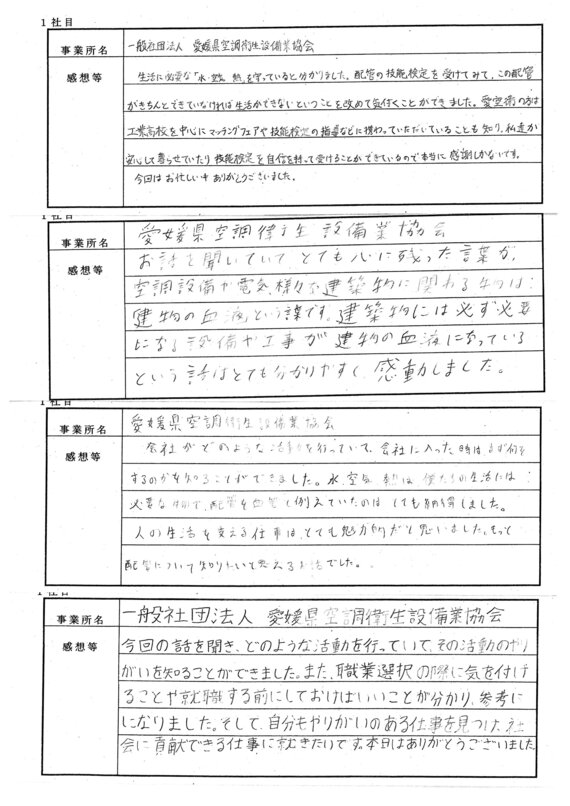 1 社目
事業所名
一般社団法人 愛媛県空調衛生設備業協会
感想等
生活に必要な「水・空気・熱」を守っていると分かりました。配管の技能検定を受けてみて、この配管
がきちんとできていなければ生活ができないということを改めて気付くことができました。愛空衛の方は
工業高校を中心にマッチングフェアや技能検定の指導などに携わっていただいていることも知り、私達が
安心して暮らせていたり技能検定を自信を持って受けることができているので本当に感謝しかないです。
今回はお忙しい中ありがとうございました。
1 社目
事業所名
愛媛県空調衛生設備業協会
感想等
お話を聞いていてとても心に残った言葉が、
空調設備や電気、様々な建築物に関わる物は
建物の血液という話です。建築物には必ず必要
になる設備や工事が建物の血液になっている
という話はとても分かりやすく、感動しました。
1 社目
事業所名
愛媛県空調衛生設備業協会
感想等
会社がどのような活動を行っていて、会社に入った時はまず何を
するのかを知ることができました。水、空気、熱は、僕たちの生活には
必要な物で、配管を血管で例えていたのはとても納得しました。
人の生活を支える仕事は、とても魅力的だと思いました。もっと
配管について知りたいと思えるお話でした。
1 社目
事業所名
一般社団法人 愛媛県空調衛生設備業協会
感想等
今回の話を聞き、どのような活動を行っていて、その活動のやり
がいを知ることができました。また、職業選択の際に気を付け
ることや就職する前にしておけばいいことが分かり、参考に
になりました。そして、自分もやりがいのある仕事を見つけ、社
会に貢献できる仕事に就きたいです。本日はありがとうございました。